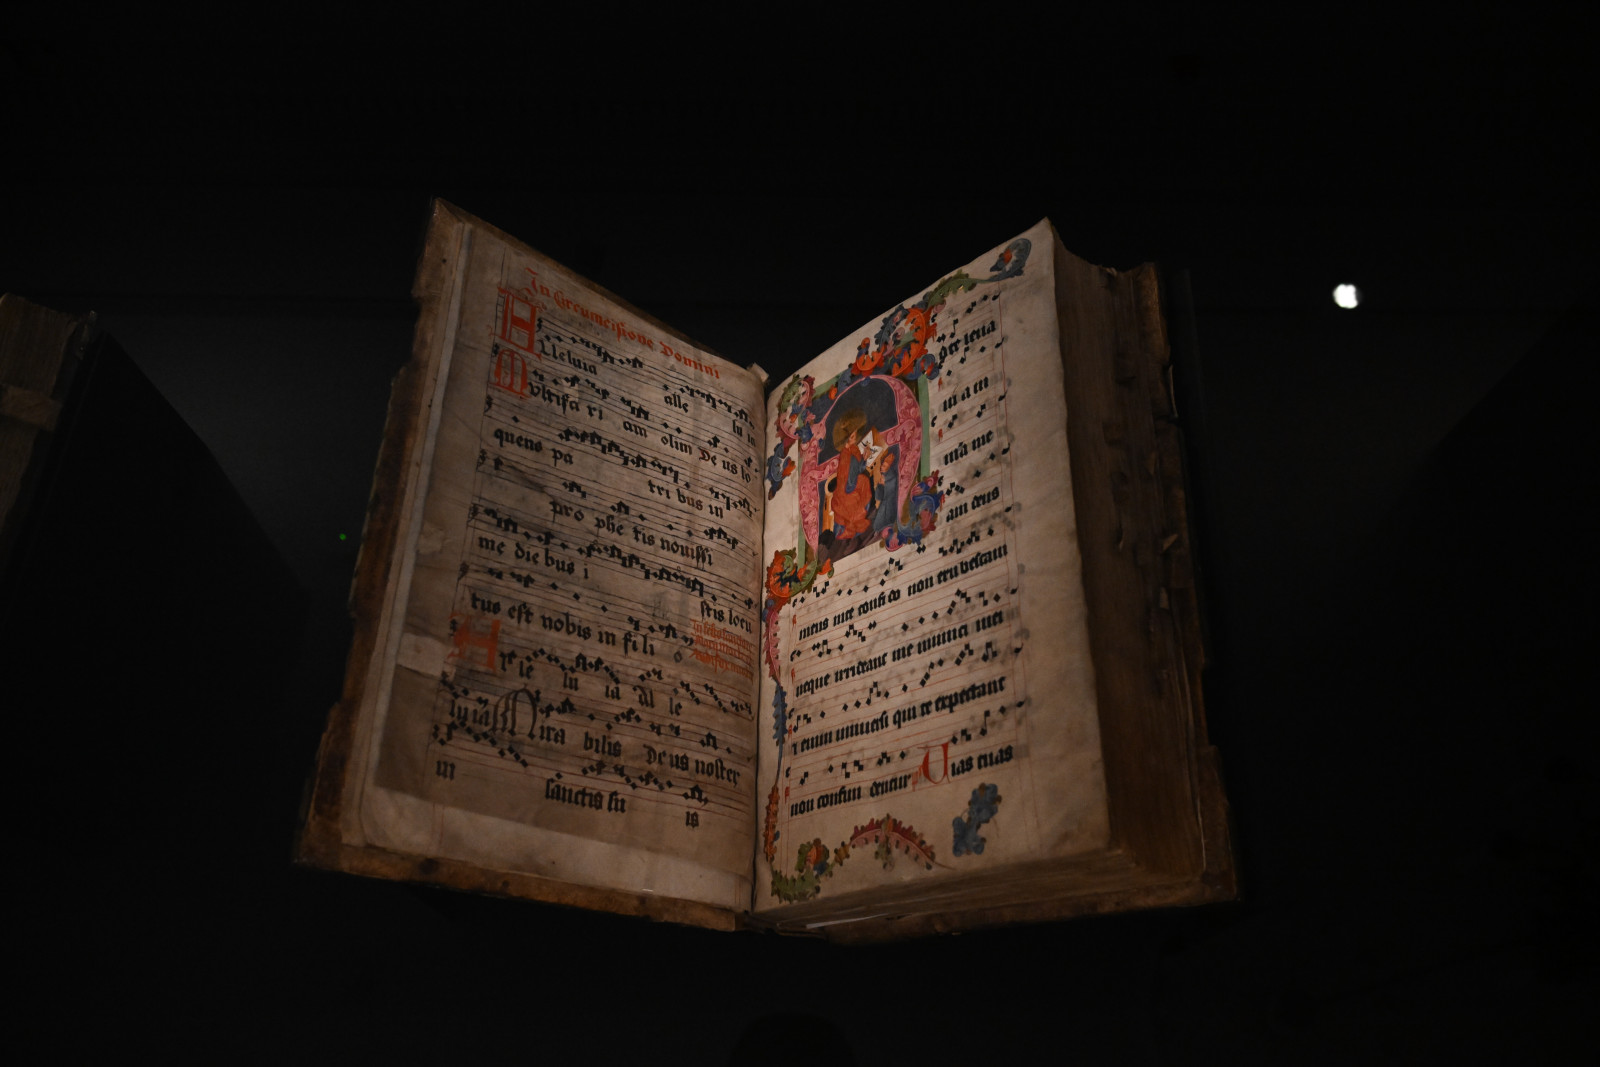 In Circumcisione Domini
Alleluia alle lu ia
Multifa ri am olim De us lo
quens pa tri bus in
pro phe tis nouissi
me die bus i stis locu
tus est nobis in fi li o
Al le lu ia Al le
lu ia Mira bilis De us noster
in sanctis su is
A
d te leua
ui a m
mā me
am deus
meus in te confi do non eru bescam
neque irrideant me inimici mei
et enim uniuersi qui te expectant
non confun dentur ps Uias tuas